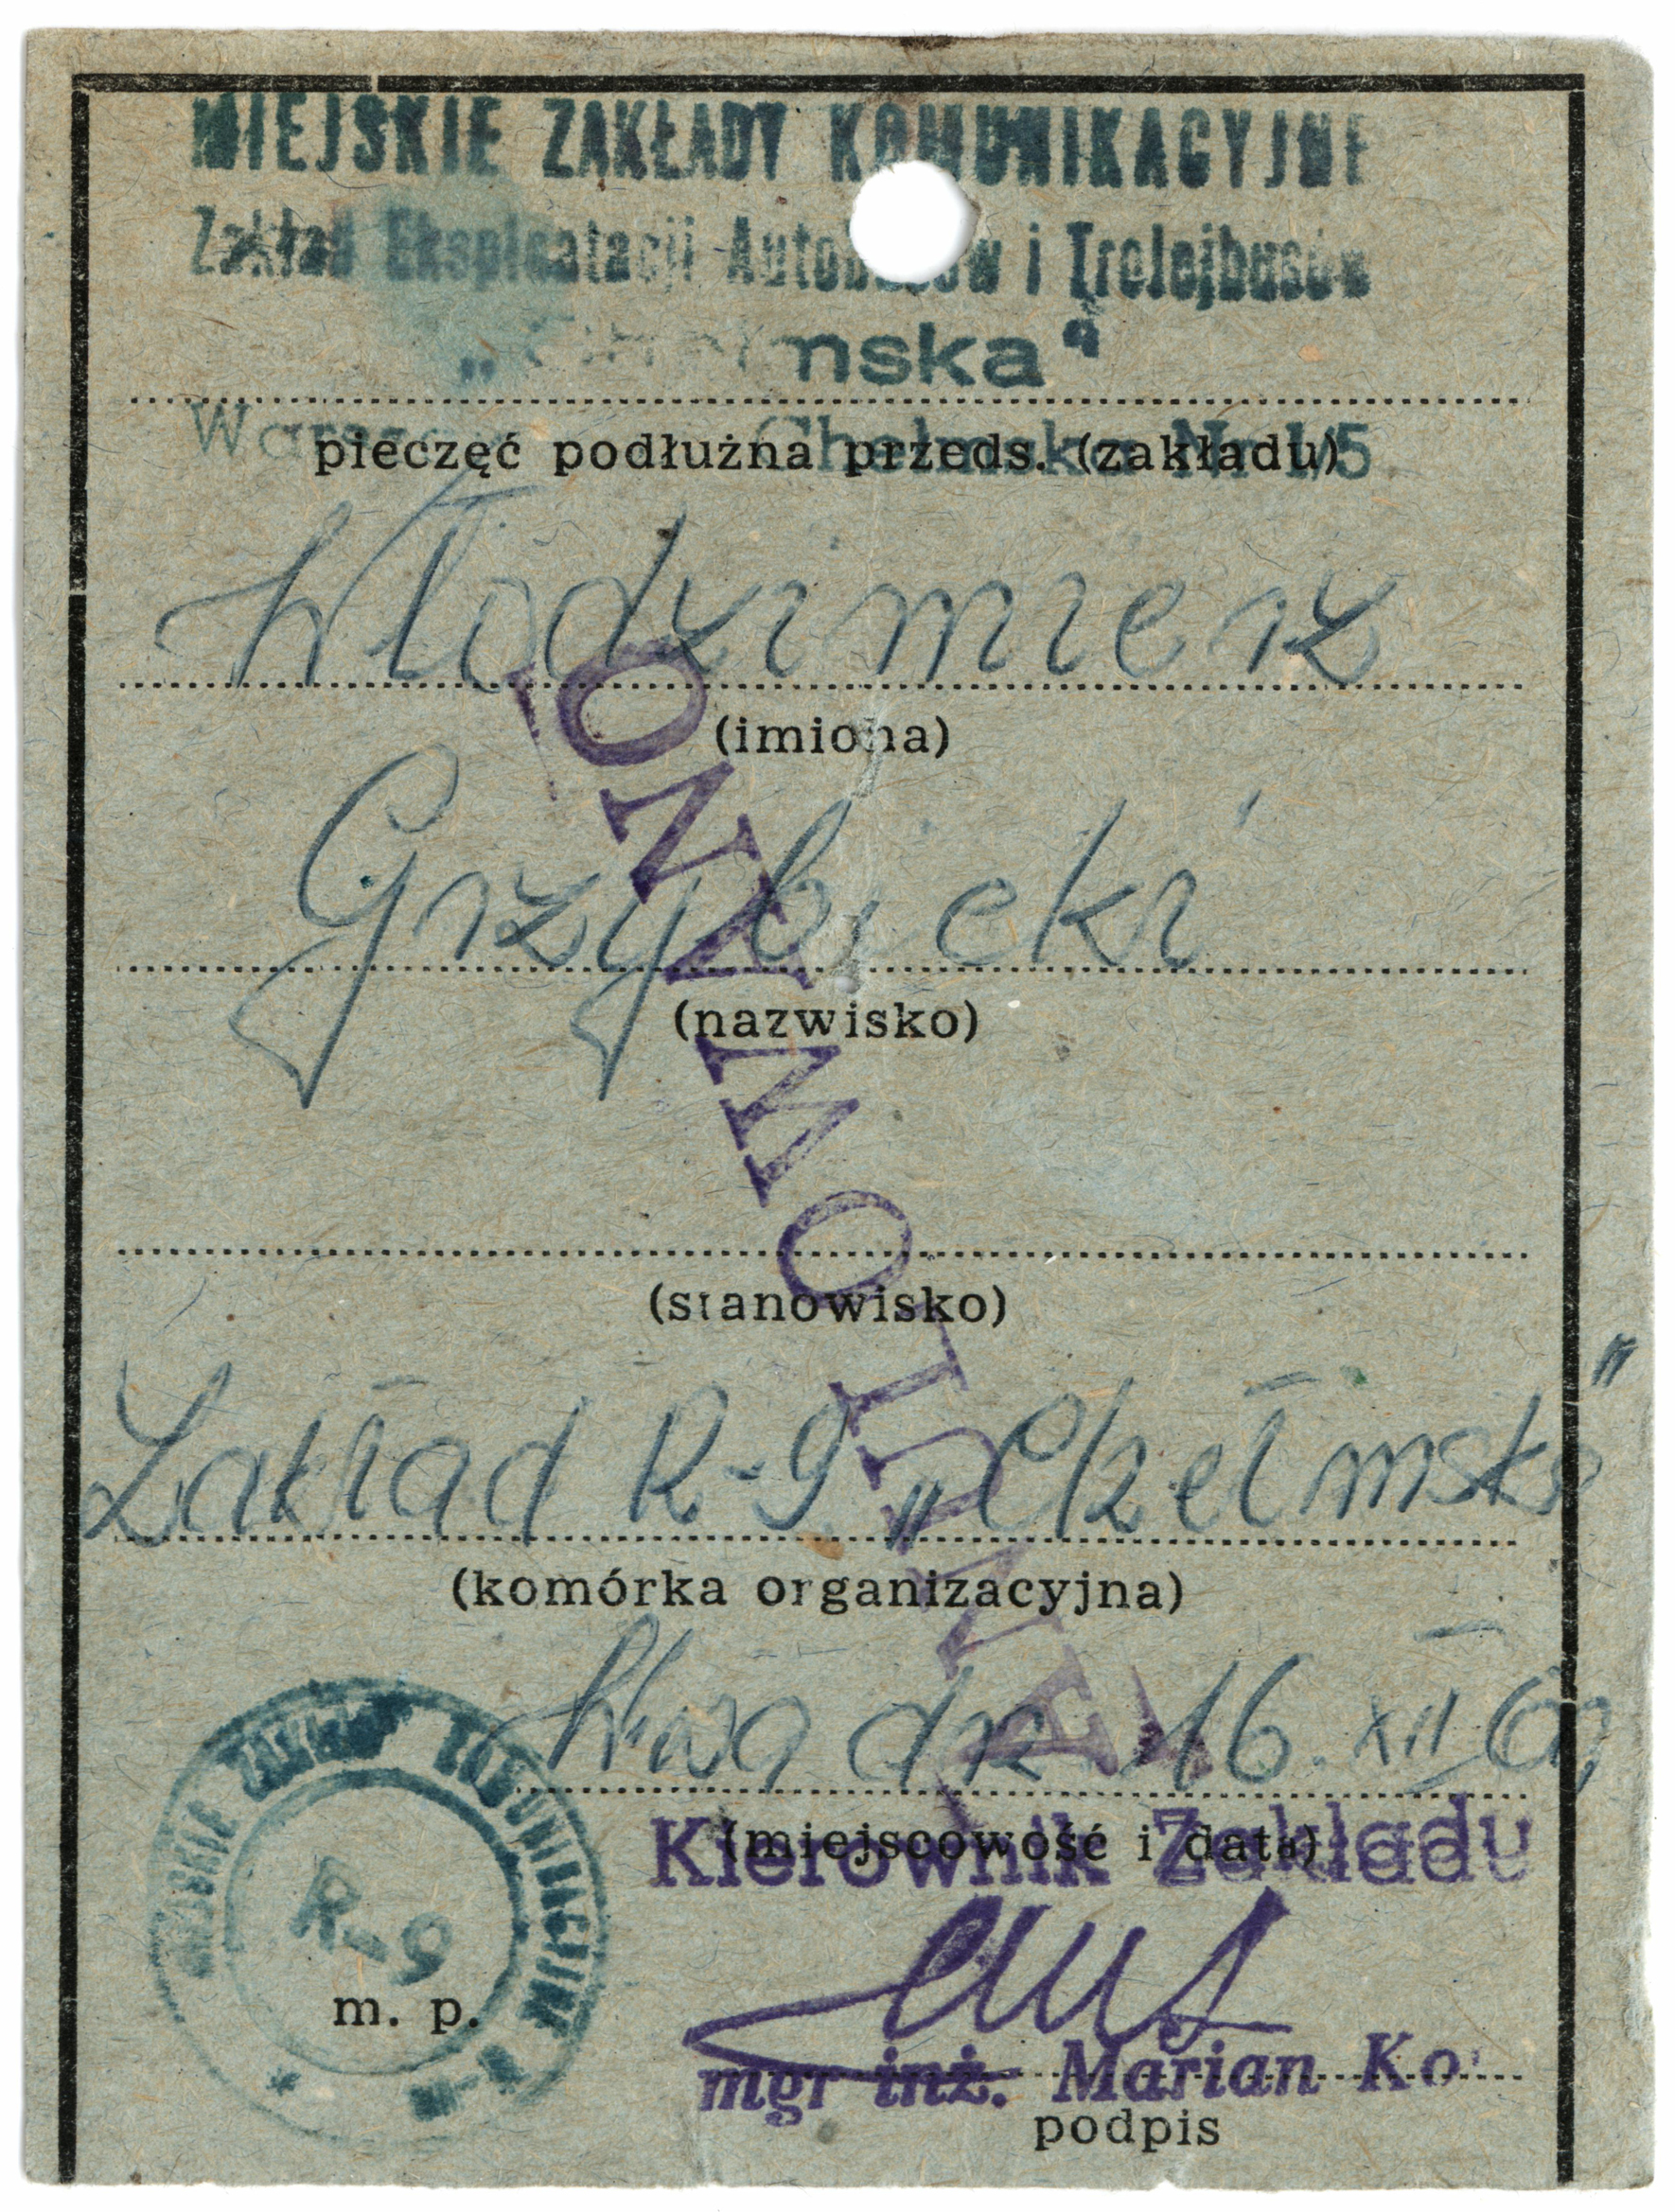 MIEJSKIE ZAKŁADY KOMUNIKACYJNE
Zakład Eksploatacji Autobusów i Trolejbusów
nska"
Chełmska Nr
pieczęć podłużna przeds. (zakładu)
Włodzimierz
(imiona)
Grzybicki
(nazwisko)
UNIEWAŻNIONO
(stanowisko)
Zakład R-9 „Chełmska"
(komórka organizacyjna)
W-wa dn 16.XII 69
(miejscowość i data)
Kierownik Zakładu
MIEJSKIE ZAKŁADY KOMUNIKACYJNE
R-9
m. p.
mgr inż. Marian Ko
podpis